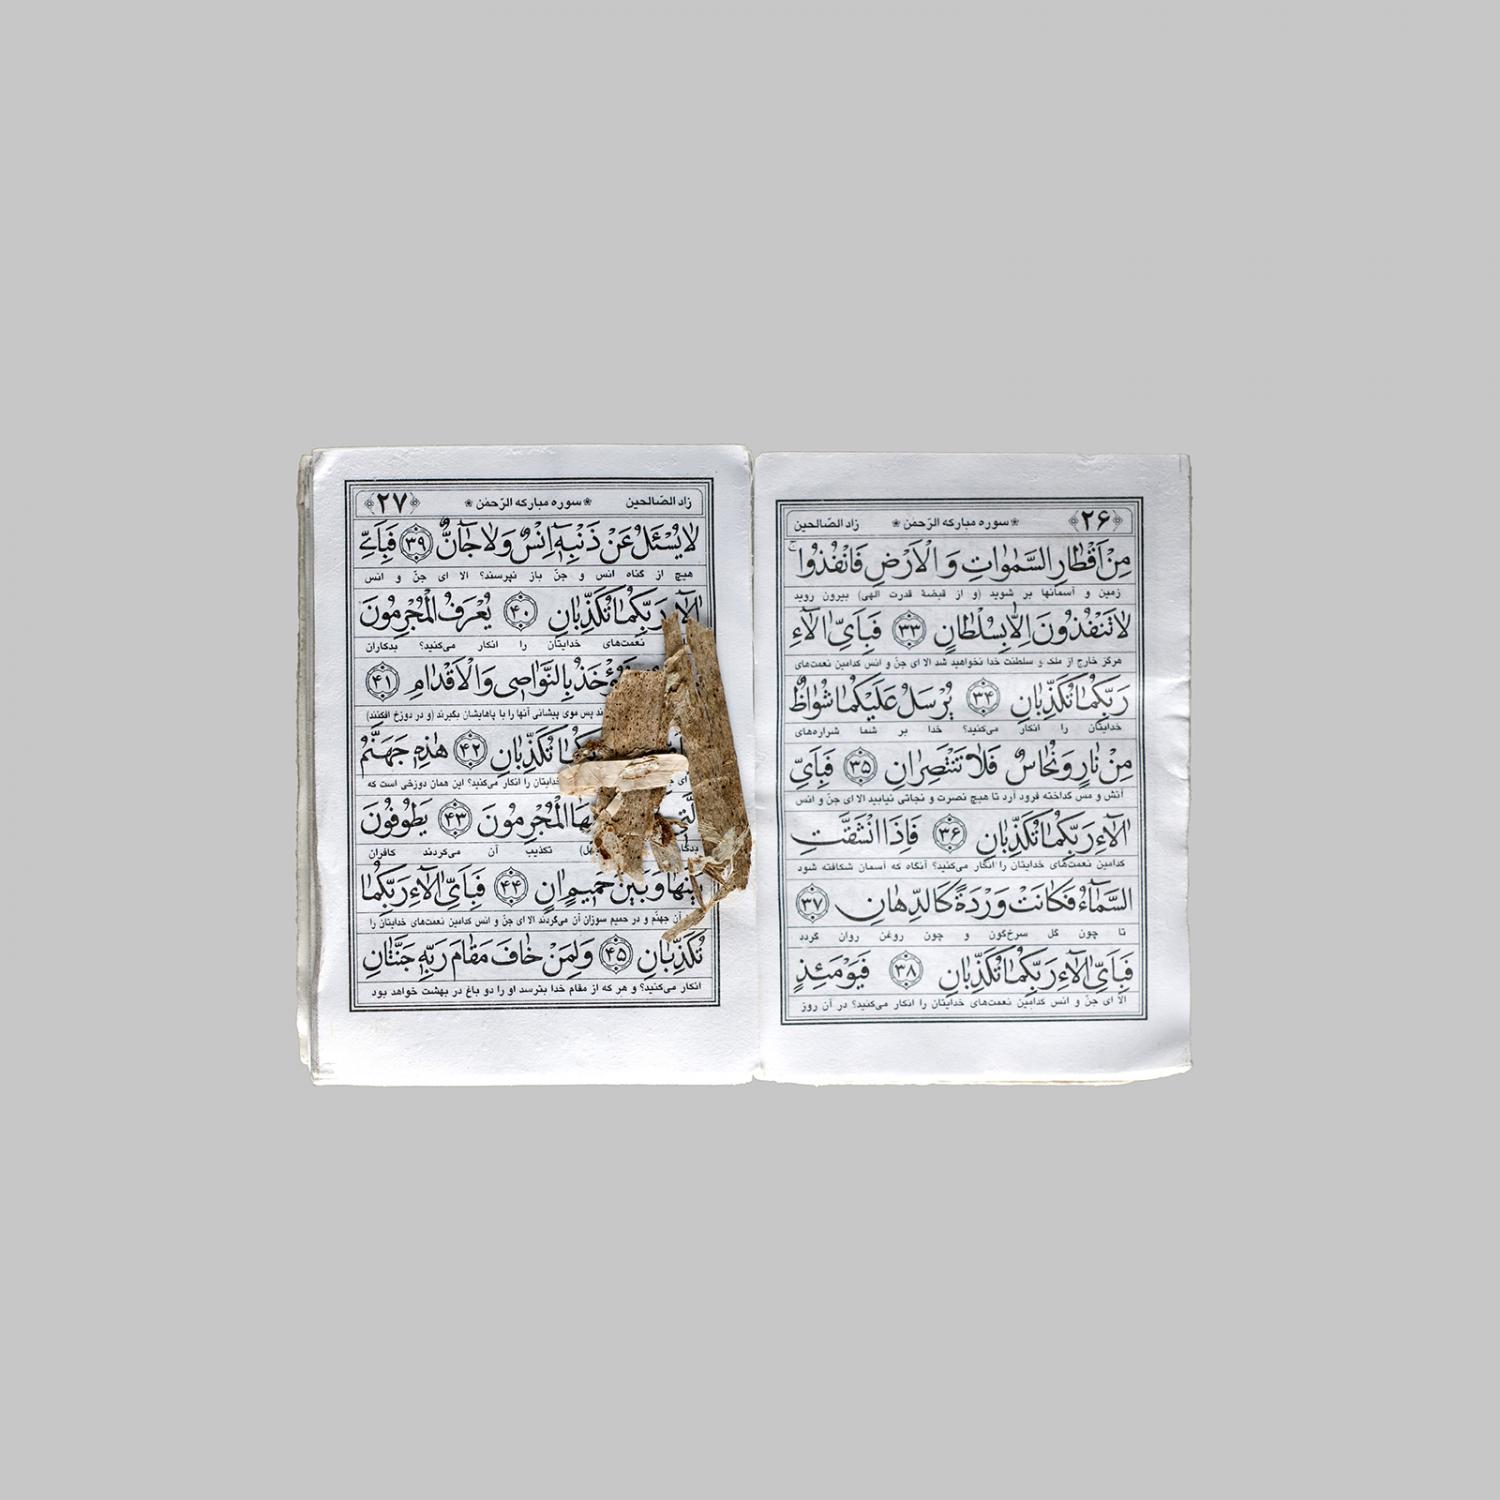 ﴿۲۶﴾ ❀ سوره مبارکه الرّحمٰن ❀ زاد الصّالحین
مِنْ اَقْطارِ السَّمٰواتِ وَ الْاَرْضِ فَانْفُذُوا ۚ
زمین و آسمانها بر شوید (و از قبضهٔ قدرت الهی) بیرون روید
لا تَنْفُذُونَ اِلّا بِسُلْطانٍ ﴿۳۳﴾ فَبِاَیِّ الآءِ
هرگز خارج از ملک و سلطنت خدا نخواهید شد الا ای جنّ و انس کدامین نعمت‌های
رَبِّکُما تُکَذِّبانِ ﴿۳۴﴾ یُرْسَلُ عَلَیْکُما شُواظٌ
خدایتان را انکار می‌کنید؟ خدا بر شما شراره‌های
مِنْ نارٍ وَ نُحاسٌ فَلا تَنْتَصِرانِ ﴿۳۵﴾ فَبِاَیِّ
آتش و مس گداخته فرود آرد تا هیچ نصرت و نجاتی نیابید الا ای جنّ و انس
الآءِ رَبِّکُما تُکَذِّبانِ ﴿۳۶﴾ فَاِذَا انْشَقَّتِ
کدامین نعمت‌های خدایتان را انکار می‌کنید؟ آنگاه که آسمان شکافته شود
السَّمآءُ فَکانَتْ وَرْدَةً کَالدِّهانِ ﴿۳۷﴾
تا چون گل سرخ‌گون و چون روغن روان گردد
فَبِاَیِّ الآءِ رَبِّکُما تُکَذِّبانِ ﴿۳۸﴾ فَیَوْمَئِذٍ
الا ای جنّ و انس کدامین نعمت‌های خدایتان را انکار می‌کنید؟ در آن روز
زاد الصّالحین ❀ سوره مبارکه الرّحمٰن ❀ ﴿۲۷﴾
لا یُسْئَلُ عَنْ ذَنْبِهٖ اِنْسٌ وَ لا جآنٌّ ﴿۳۹﴾ فَبِاَیِّ
هیچ از گناه انس و جنّ باز نپرسند؟ الا ای جنّ و انس
الآءِ رَبِّکُما تُکَذِّبانِ ﴿۴۰﴾ یُعْرَفُ الْمُجْرِمُونَ
نعمت‌های خدایتان را انکار می‌کنید؟ بدکاران
فَیُؤْخَذُ بِالنَّواصی وَ الْاَقْدامِ ﴿۴۱﴾
پس موی پیشانی آنها را با پاهایشان بگیرند (و در دوزخ افکنند)
تُکَذِّبانِ ﴿۴۲﴾ هٰذِهٖ جَهَنَّمُ
خدایتان را انکار می‌کنید؟ این همان دوزخی است که
الَّتی الْمُجْرِمُونَ ﴿۴۳﴾ یَطُوفُونَ
تکذیب آن می‌کردند کافران
بَیْنَها وَ بَیْنَ حَمیمٍ انٍ ﴿۴۴﴾ فَبِاَیِّ الآءِ رَبِّکُما
آن جهنّم و در حمیم سوزان آن می‌گردند الا ای جنّ و انس کدامین نعمت‌های خدایتان را
تُکَذِّبانِ ﴿۴۵﴾ وَ لِمَنْ خافَ مَقامَ رَبِّهٖ جَنَّتانِ
انکار می‌کنید؟ و هر که از مقام خدا بترسد او را دو باغ در بهشت خواهد بود